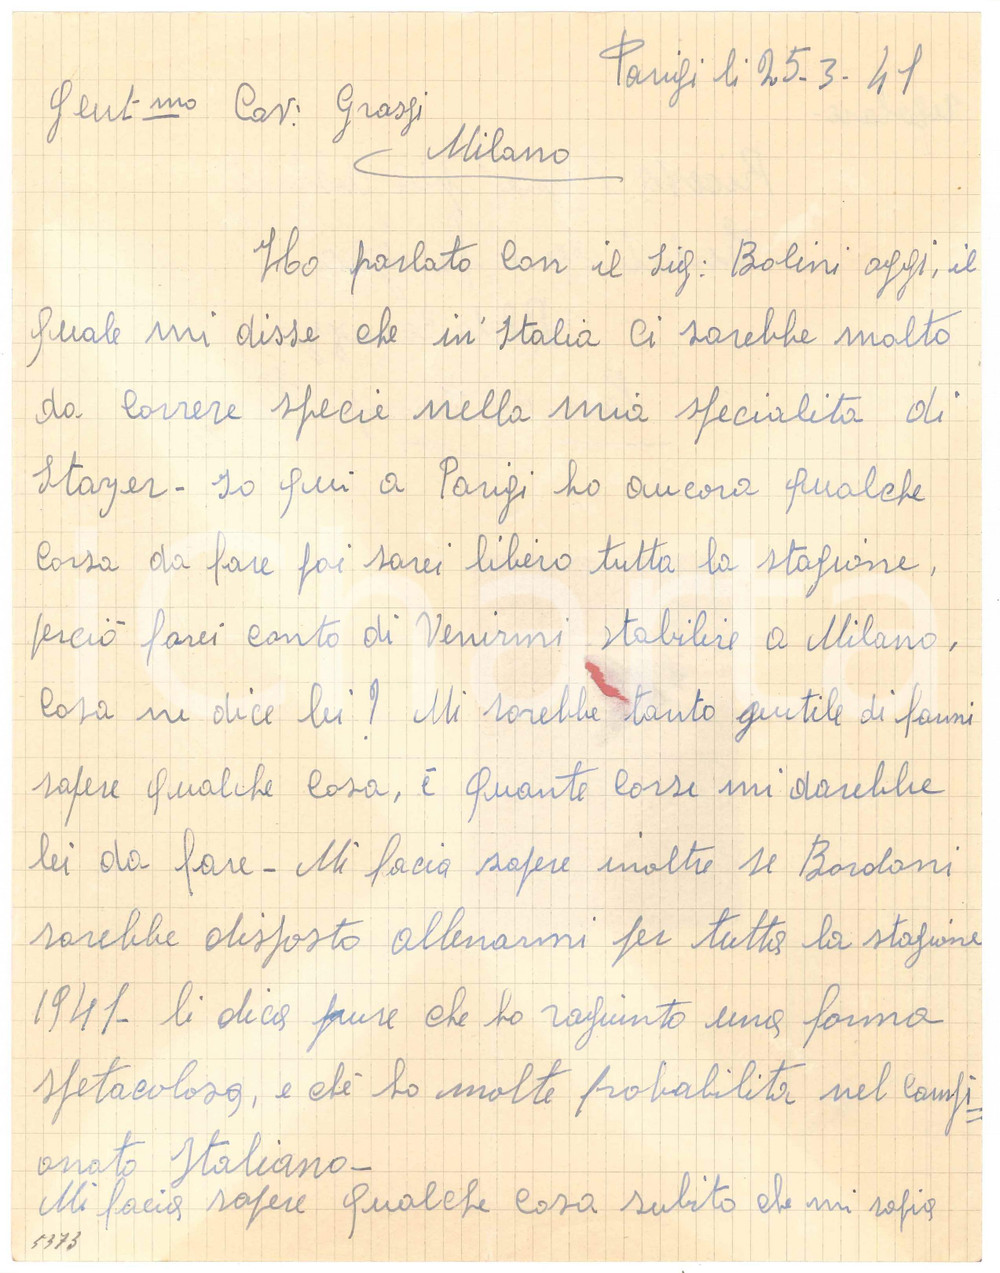 Parigi li 25-3-41
Gent-mo Cav: Grassi
Milano
Ho parlato con il Sig: Bolini oggi, il
quale mi disse che in' Italia ci sarebbe molto
da correre specie nella mia specialita di
Stayer - Io qui a Parigi ho ancora qualche
corsa da fare poi sarei libero tutta la stagione,
perciò farei conto di Venirmi stabilire a Milano,
cosa ne dice lei? Mi sarebbe tanto gentile di farmi
sapere qualche cosa, è quante corse mi darebbe
lei da fare - Mi facia sapere inoltre se Bordoni
sarebbe disposto allenarmi per tutta la stagione
1941- li dica pure che ho ragiunto una forma
spetacolosa, e chè ho molte probabilità nel Campi=
onato Italiano-
Mi facia sapere qualche cosa subito che mi sapia
5373
iCharta